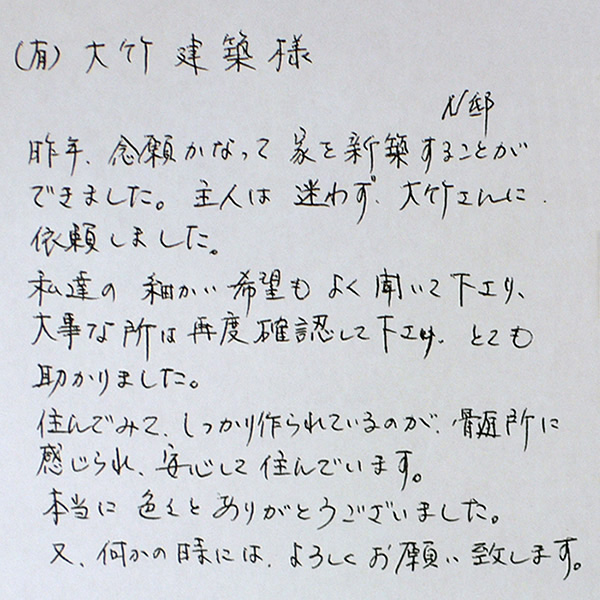 (有)大竹建築様
N邸
昨年、念願かなって家を新築することが
できました。主人は迷わず、大竹さんに
依頼しました。
私達の細かい希望もよく聞いて下エリ、
大事な所は再度確認して下エリ、とても
助かりました。
住んでみて、しっかり作られているのが、随所に
感じられ、安心して住んでいます。
本当に色々とありがとうございました。
又、何かの時には、よろしくお願い致します。